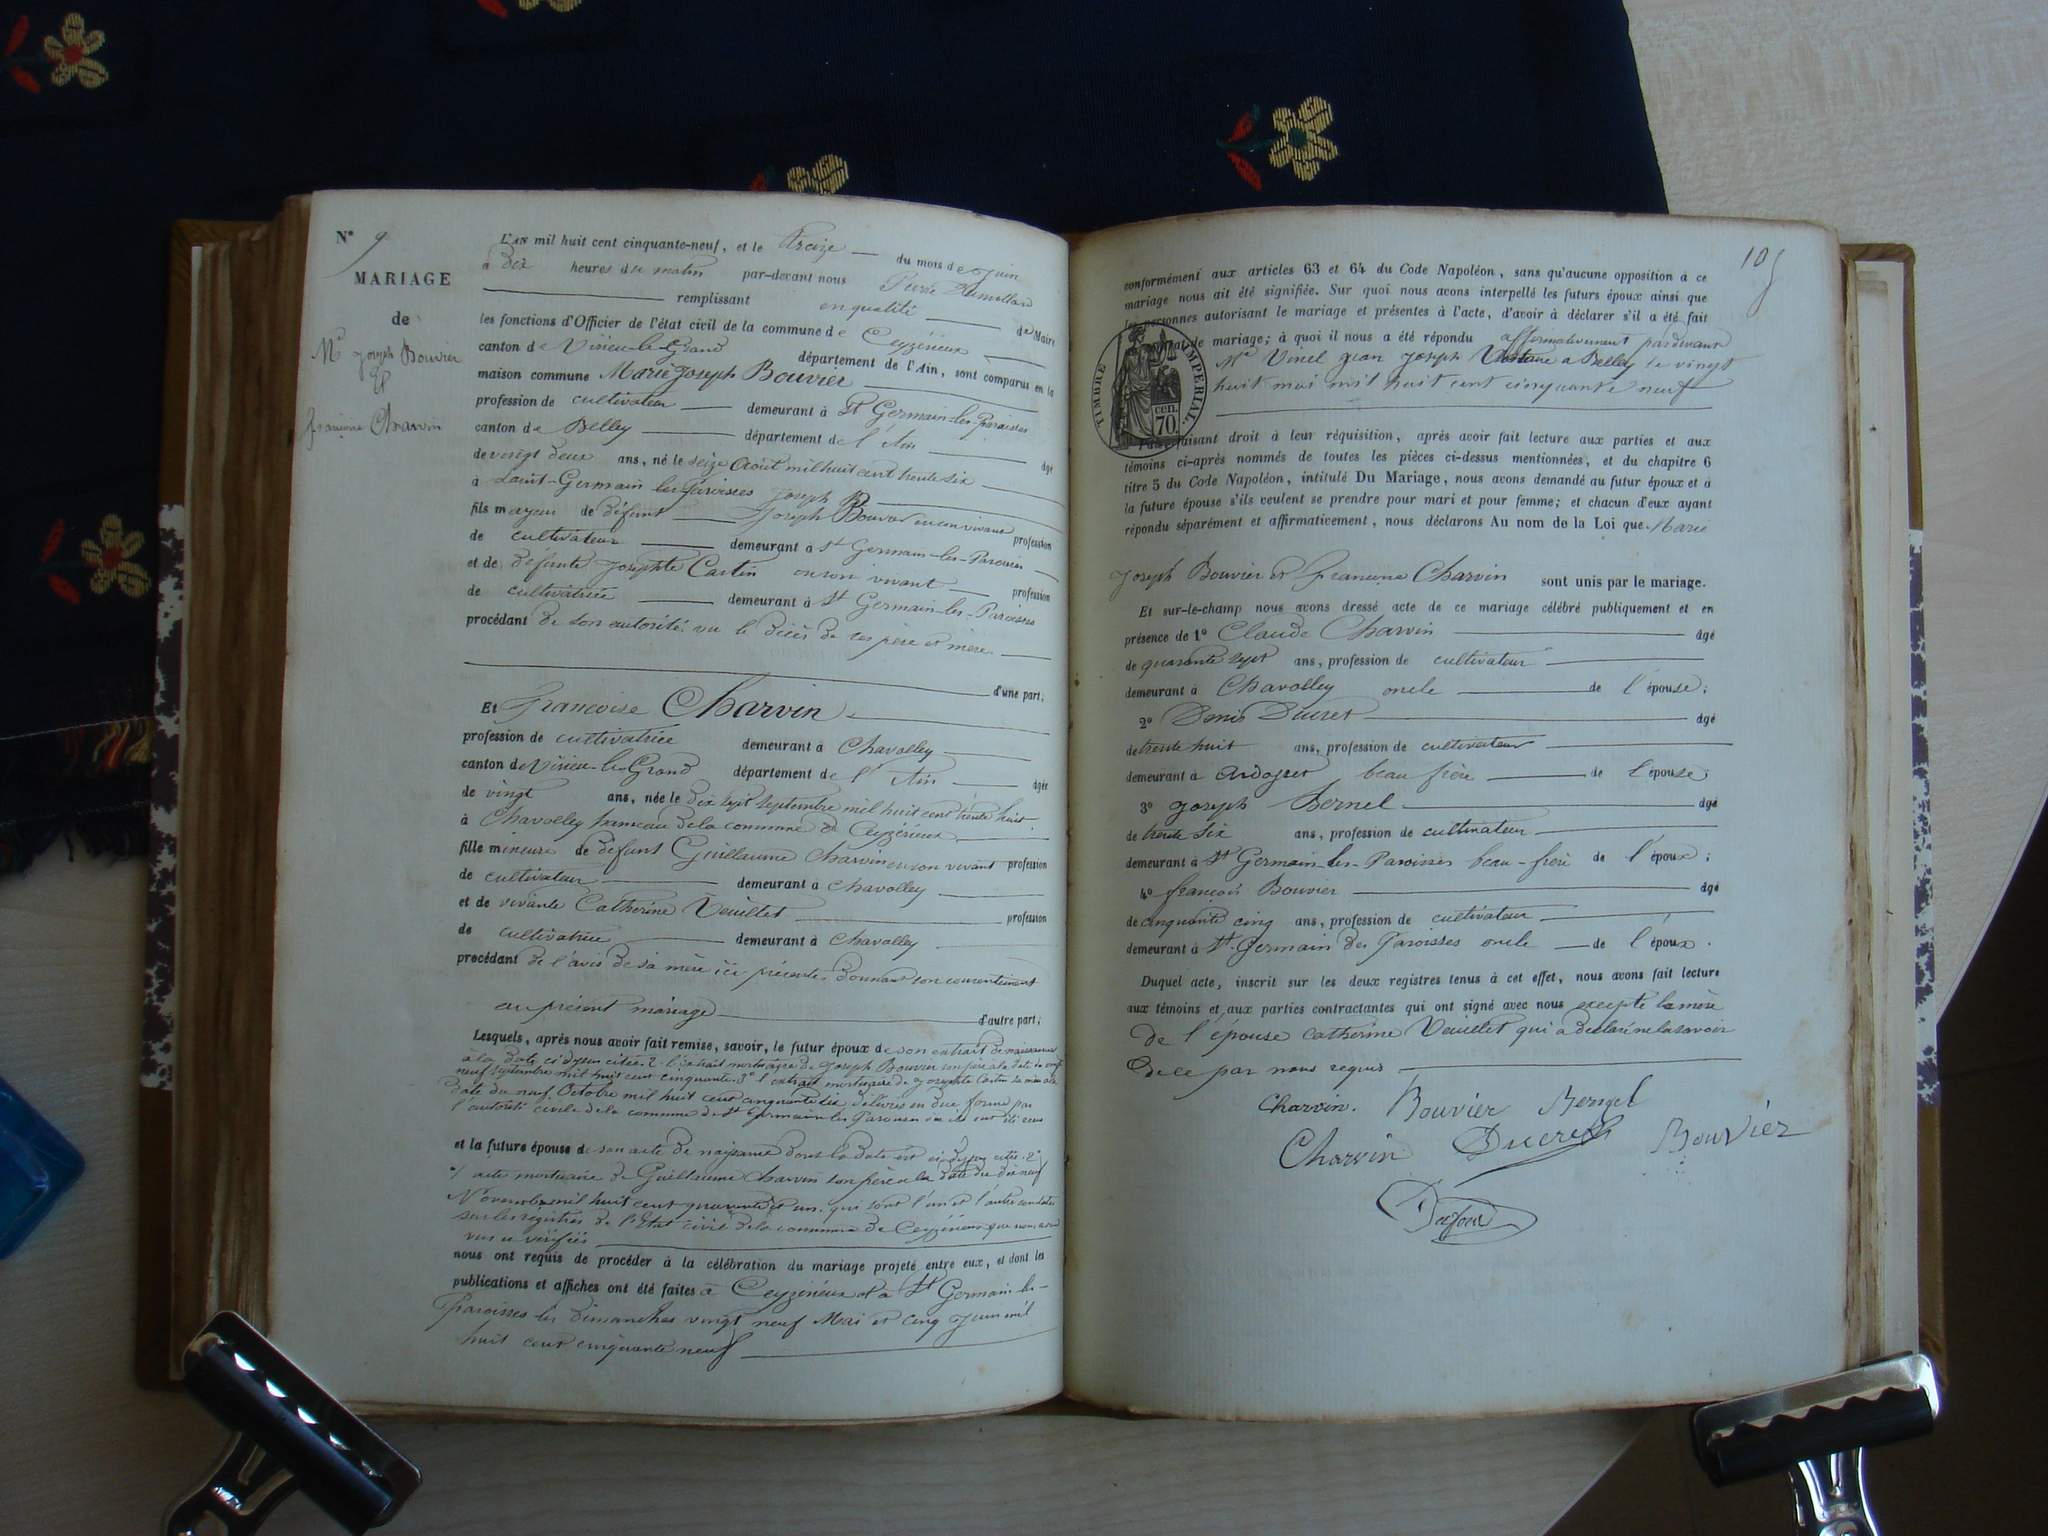 N° 9
MARIAGE
de
Me Joseph Bouvier
&
françoise Charvin
L'an mil huit cent cinquante-neuf, et le treize du mois de Juin
à dix heures du matin par-devant nous Pierre
remplissant en qualité de Maire
les fonctions d'Officier de l'état civil de la commune de Ceyzérieux
canton de Virieu-le-Grand département de l'Ain, sont comparus en la
maison commune Marie Joseph Bouvier
profession de cultivateur demeurant à St Germain-les-Paroisses
canton de Belley département de l'Ain âgé
de vingt deux ans, né le seize Aout mil huit cent trente six
à Saint-Germain les Paroisses
fils majeur de défunt Joseph Bouvier en son vivant profession
de cultivateur demeurant à St Germain-les-Paroisses
et de défunte Josephte Cartin en son vivant profession
de cultivatrice demeurant à St Germain-les-Paroisses
procédant de son autorité vu le décès de ses père et mère
d'une part;
Et françoise Charvin
profession de cultivatrice demeurant à Chavolley
canton de Virieu-le-Grand département de l'Ain âgée
de vingt ans, née le dix sept septembre mil huit cent trente huit
à Chavolley hameau de la commune de Ceyzérieux
fille mineure de défunt Guillaume Charvin en son vivant profession
de cultivateur demeurant à Chavolley
et de vivante Catherine Veuillet profession
de cultivatrice demeurant à Chavolley
procédant de l'avis de sa mère ici présente donnant son consentement
au présent mariage d'autre part;
Lesquels, après nous avoir fait remise, savoir, le futur époux de son extrait de naissance
à la date ci dessus citée. 2° l'extrait mortuaire de Joseph Bouvier son père à la date du vingt
neuf septembre mil huit cent cinquante. 3° l'extrait mortuaire de Josephte Cartin sa mère à la
date du neuf Octobre mil huit cent cinquante six délivrés en due forme par
l'autorité civile de la commune de St Germain les Paroisses
et la future épouse de son acte de naissance dont la date est ci dessus citée. 2°
acte mortuaire de Guillaume Charvin son père à la date du dix neuf
Novembre mil huit cent quarante et un. qui sont l'un et l'autre constatés
sur les registres de l'Etat civil de la commune de Ceyzérieux que nous avons
vus et vérifiés
nous ont requis de procéder à la célébration du mariage projeté entre eux, et dont les
publications et affiches ont été faites à Ceyzérieux et à St Germain-les-
Paroisses les dimanches vingt neuf Mai et cinq Juin mil
huit cent cinquante neuf
105
conformément aux articles 63 et 64 du Code Napoléon, sans qu'aucune opposition à ce
mariage nous ait été signifiée. Sur quoi nous avons interpellé les futurs époux ainsi que
les personnes autorisant le mariage et présentes à l'acte, d'avoir à déclarer s'il a été fait
de mariage; à quoi il nous a été répondu affirmativement pardevant
Me Vinel Jean Joseph Notaire a Belley le vingt
huit mai mil huit cent cinquante neuf
TIMBRE IMPERIAL
70 cen.
faisant droit à leur réquisition, après avoir fait lecture aux parties et aux
témoins ci-après nommés de toutes les pièces ci-dessus mentionnées, et du chapitre 6
titre 5 du Code Napoléon, intitulé Du Mariage, nous avons demandé au futur époux et à
la future épouse s'ils veulent se prendre pour mari et pour femme; et chacun d'eux ayant
répondu séparément et affirmaticement, nous déclarons Au nom de la Loi que Marie
Joseph Bouvier et françoise Charvin sont unis par le mariage.
Et sur-le-champ nous avons dressé acte de ce mariage célébré publiquement et en
présence de 1° Claude Charvin âgé
de quarante sept ans, profession de cultivateur
demeurant à Chavolley oncle de l'épouse;
2° Denis Ducret âgé
de trente huit ans, profession de cultivateur
demeurant à Ardosset beau frère de l'épouse;
3° Joseph Bernel âgé
de trente six ans, profession de cultivateur
demeurant à St Germain-les-Paroisses beau-frère de l'époux;
4° françois Bouvier âgé
de cinquante cinq ans, profession de cultivateur
demeurant à St Germain des Paroisses oncle de l'époux.
Duquel acte, inscrit sur les deux registres tenus à cet effet, nous avons fait lecture
aux témoins et aux parties contractantes qui ont signé avec nous excepté la mère
de l'épouse Catherine Veuillet qui a déclaré ne la savoir
de ce par nous requis
Charvin. Bouvier Bernel
Charvin Ducret Bouvier